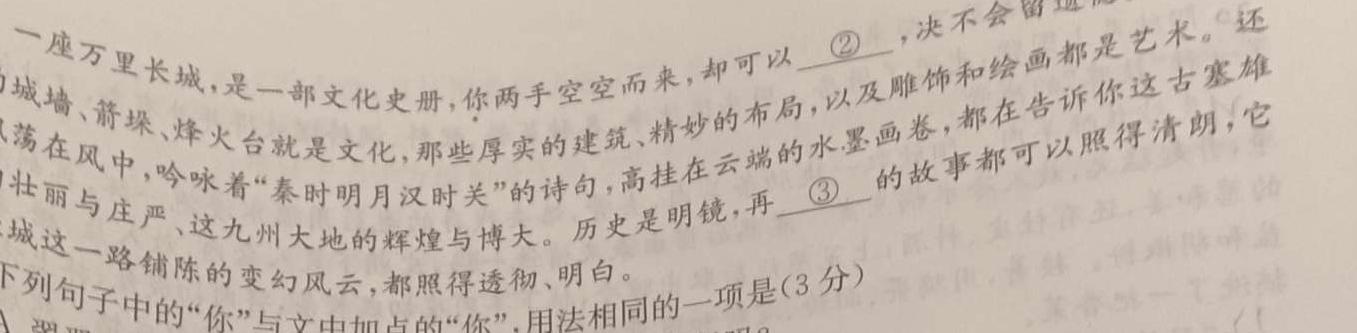 一座万里长城,是一部文化史册,你两手空空而来,却可以 ② ,决不会留遗
城墙、箭垛、烽火台就是文化,那些厚实的建筑、精妙的布局,以及雕饰和绘画都是艺术。还
荡在风中,吟咏着“秦时明月汉时关”的诗句,高挂在云端的水墨画卷,都在告诉你这古塞雄
壮丽与庄严、这九州大地的辉煌与博大。历史是明镜,再 ③ 的故事都可以照得清朗,它
城这一路铺陈的变幻风云,都照得透彻、明白。
下列句子中的“你”与文中加点的“你”,用法相同的一项是(3分)